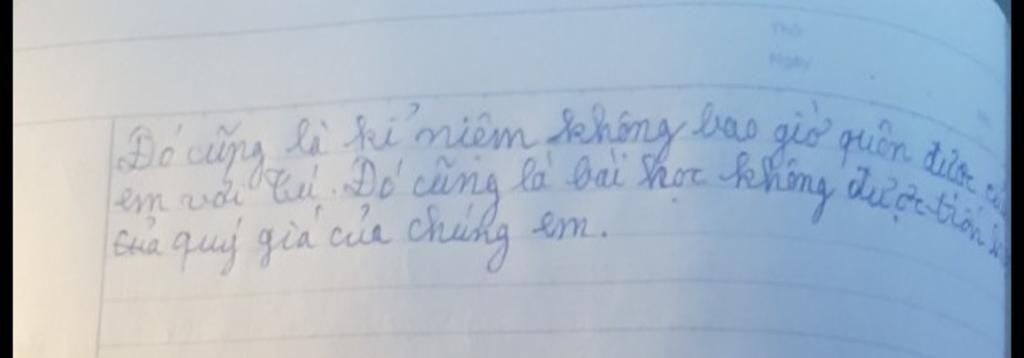 Thứ
Ngày
Đó cũng là kỉ niệm không bao giờ quên được của
em với Tú. Đó cũng là bài học không được
của quý giá của chúng em.